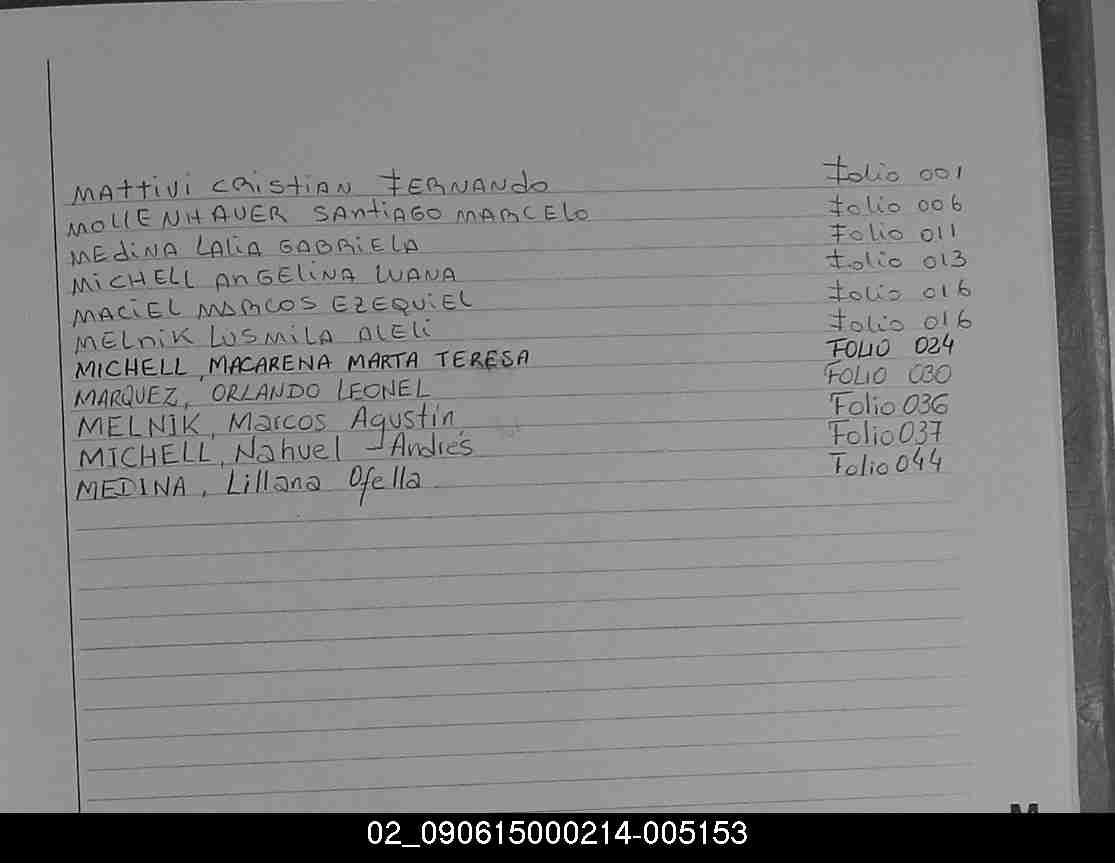 MAttiVi CRiStiAN FERNANdo Folio 001
MOLLENHAUER SANtiAGO MARCELO Folio 006
MEdiNA LALiA GABRiELA Folio 011
MiCHELL ANGELiNA LUANA Folio 013
MACiEL MARCOS EZEQUiEL Folio 016
MELniK LUSMiLA ALELi Folio 016
MICHELL, MACARENA MARTA TERESA FOLIO 024
MARQUEZ, ORLANDO LEONEL FOLIO 030
MELNIK, Marcos Agustín Folio 036
MICHELL, Nahuel - Andrés Folio 037
MEDINA, Liliana Ofelia Folio 044
M
02_090615000214-005153